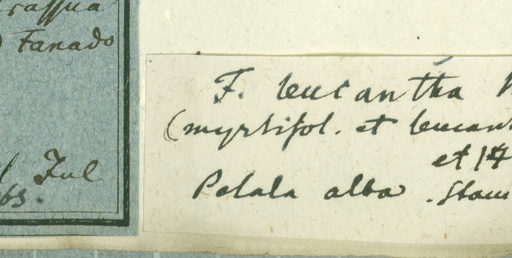 Fanado
Jul
F. leucantha
(myrtifol. et leucan
et 14
Petala alba. Stam